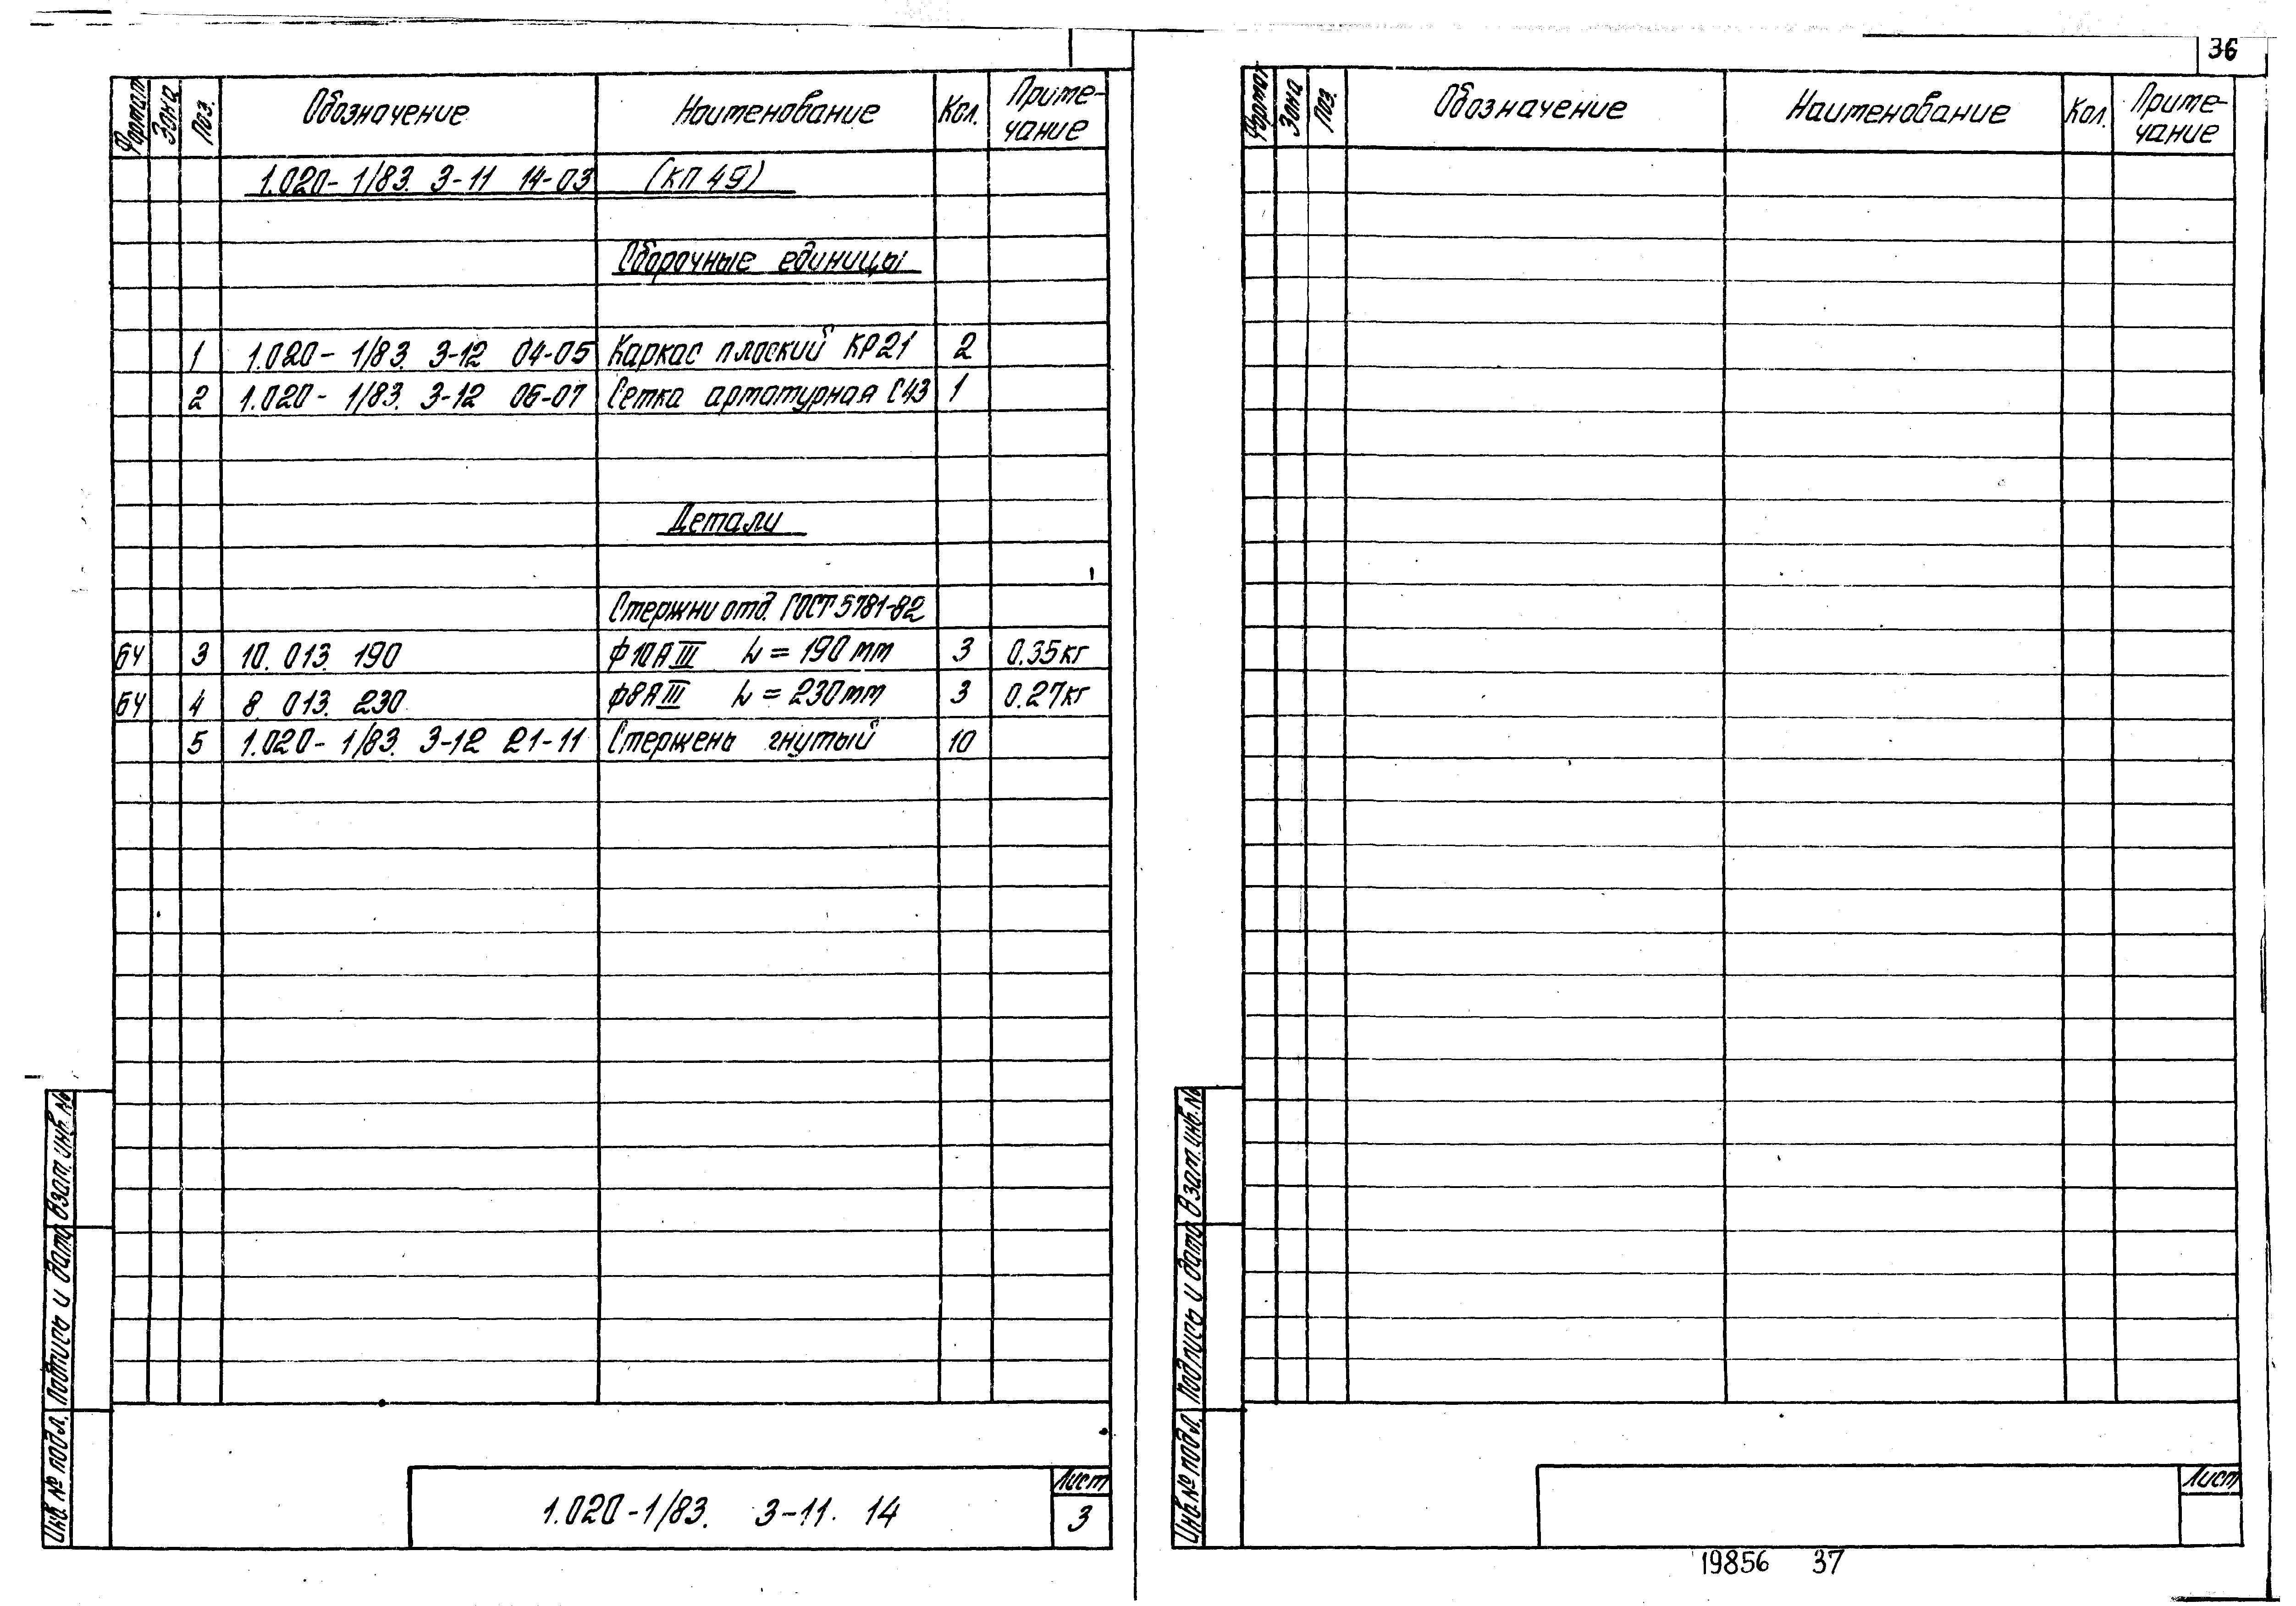 36
Формат Зона Поз. Обозначение Наименование Кол. Приме-
чание
1.020-1/83. 3-11 14-03 (КП 49)
Сборочные единицы
1 1.020-1/83. 3-12 04-05 Каркас плоский КР21 2
2 1.020-1/83. 3-12 06-07 Сетка арматурная С43 1
Детали
Стержни отд. ГОСТ 5781-82
БЧ 3 10. 013. 190 Ф10АIII L = 190 мм 3 0.35кг
БЧ 4 8. 013. 230 Ф8АIII L = 230мм 3 0.27кг
5 1.020-1/83. 3-12 21-11 Стержень гнутый 10
Инв. № подл. Подпись и дата Взам. инв. №
1.020-1/83. 3-11. 14
Лист
3
Формат Зона Поз. Обозначение Наименование Кол. Приме-
чание
Инв. № подл. Подпись и дата Взам. инв. №
Лист
19856 37